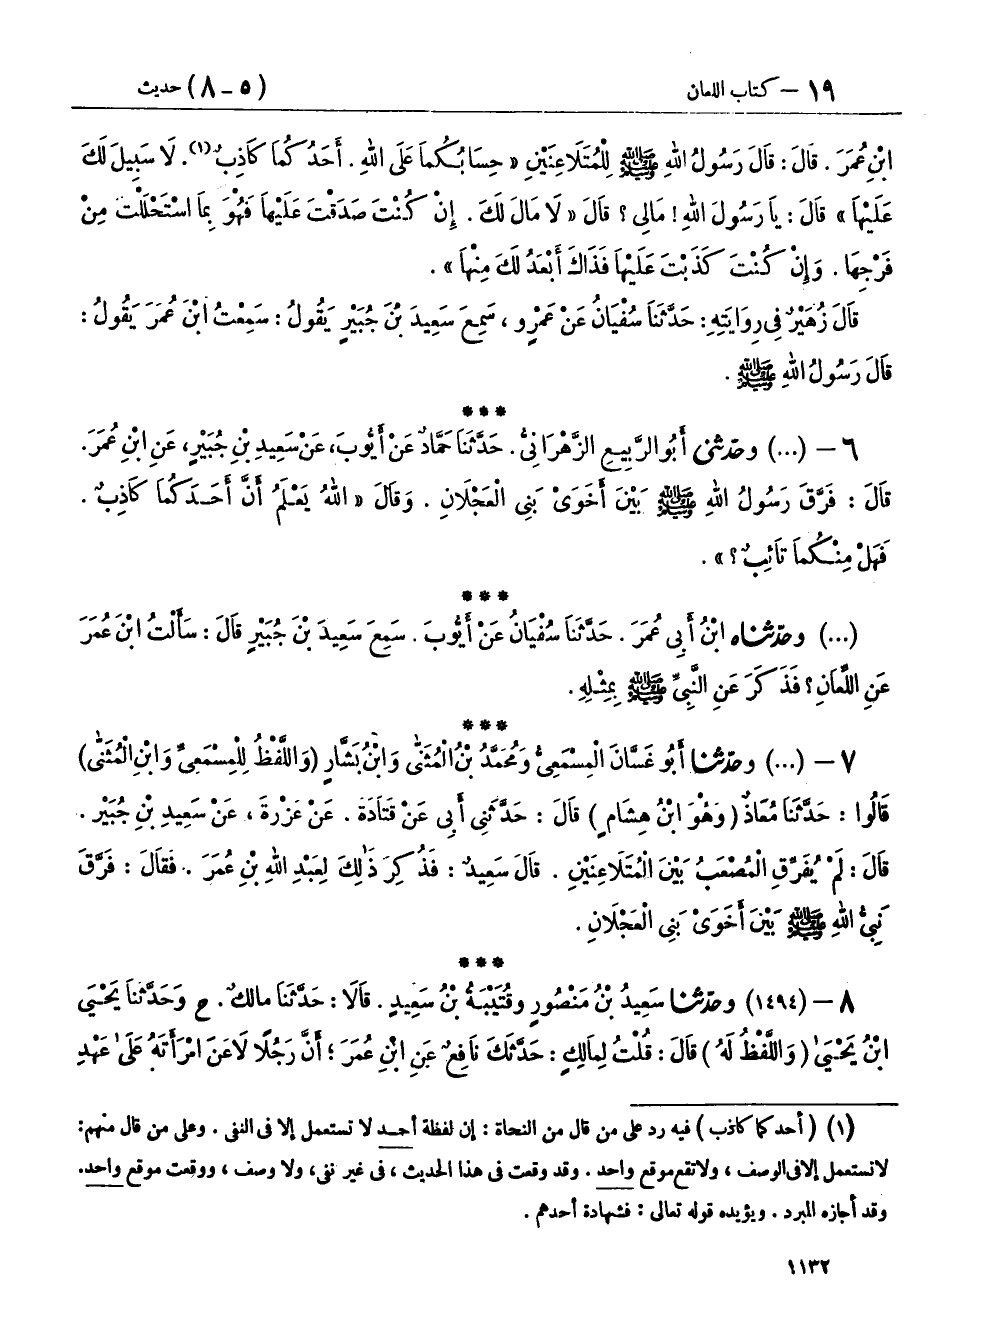 ١٩ – كتاب اللعان (٥ – ٨) حديث
ابْنِ عُمَرَ . قَالَ : قَالَ رَسُولُ اللهِ ﷺ لِلْمُتَلَاعِنَيْنِ « حِسَابُكُمَا عَلَى اللهِ . أَحَدُكُمَا كَاذِبٌ(١). لَا سَبِيلَ لَكَ
عَلَيْهَا » قَالَ : يَا رَسُولَ اللهِ ! مَالِى ؟ قَالَ « لَا مَالَ لَكَ . إِنْ كُنْتَ صَدَقْتَ عَلَيْهَا فَهُوَ بِمَا اسْتَحْلَلْتَ مِنْ
فَرْجِهَا . وَإِنْ كُنْتَ كَذَبْتَ عَلَيْهَا فَذَاكَ أَبْعَدُ لَكَ مِنْهَا » .
قَالَ زُهَيْرٌ فِى رِوَايَتِهِ : حَدَّثَنَا سُفْيَانُ عَنْ عَمْرٍو ، سَمِعَ سَعِيدَ بْنَ جُبَيْرٍ يَقُولُ : سَمِعْتُ ابْنَ عُمَرَ يَقُولُ :
قَالَ رَسُولُ اللهِ ﷺ .
***
٦ – (...) وحَدَّثَنِى أَبُو الرَّبِيعِ الزَّهْرَانِىُّ . حَدَّثَنَا حَمَّادٌ عَنْ أَيُّوبَ، عَنْ سَعِيدِ بْنِ جُبَيْرٍ، عَنِ ابْنِ عُمَرَ.
قَالَ : فَرَّقَ رَسُولُ اللهِ ﷺ بَيْنَ أَخَوَىْ بَنِى الْعَجْلَانِ . وَقَالَ « اللهُ يَعْلَمُ أَنَّ أَحَدَكُمَا كَاذِبٌ .
فَهَلْ مِنْكُمَا تَائِبٌ ؟ » .
***
(...) وحَدَّثَنَاه ابْنُ أَبِى عُمَرَ . حَدَّثَنَا سُفْيَانُ عَنْ أَيُّوبَ . سَمِعَ سَعِيدَ بْنَ جُبَيْرٍ قَالَ : سَأَلْتُ ابْنَ عُمَرَ
عَنِ اللِّعَانِ ؟ فَذَكَرَ عَنِ النَّبِىِّ ﷺ بِمِثْلِهِ .
***
٧ – (...) وحَدَّثَنَا أَبُو غَسَّانَ الْمِسْمَعِىُّ وَمُحَمَّدُ بْنُ الْمُثَنَّى وَابْنُ بَشَّارٍ (وَاللَّفْظُ لِلْمِسْمَعِىِّ وَابْنِ الْمُثَنَّى)
قَالُوا : حَدَّثَنَا مُعَاذٌ (وَهُوَ ابْنُ هِشَامٍ) قَالَ : حَدَّثَنِى أَبِى عَنْ قَتَادَةَ . عَنْ عَزْرَةَ ، عَنْ سَعِيدِ بْنِ جُبَيْرٍ .
قَالَ : لَمْ يُفَرِّقِ الْمُصْعَبُ بَيْنَ الْمُتَلَاعِنَيْنِ . قَالَ سَعِيدٌ : فَذُكِرَ ذَٰلِكَ لِعَبْدِ اللهِ بْنِ عُمَرَ . فَقَالَ : فَرَّقَ
نَبِىُّ اللهِ ﷺ بَيْنَ أَخَوَىْ بَنِى الْعَجْلَانِ .
***
٨ – (١٤٩٤) وحَدَّثَنَا سَعِيدُ بْنُ مَنْصُورٍ وَقُتَيْبَةُ بْنُ سَعِيدٍ . قَالَا : حَدَّثَنَا مَالِكٌ . ح وَحَدَّثَنَا يَحْيَى
ابْنُ يَحْيَىٰ (وَاللَّفْظُ لَهُ) قَالَ : قُلْتُ لِمَالِكٍ : حَدَّثَكَ نَافِعٌ عَنِ ابْنِ عُمَرَ ؛ أَنَّ رَجُلًا لَاعَنَ امْرَأَتَهُ عَلَىٰ عَهْدِ
(١) ( أحدكما كاذب ) فيه رد على من قال من النحاة : إن لفظة أحد لا تستعمل إلا فى النفى . وعلى من قال منهم :
لا تستعمل إلا فى الوصف ، ولا تقع موقع واحد . وقد وقعت فى هذا الحديث ، فى غير نفى، ولا وصف ، ووقعت موقع واحد.
وقد أجازه المبرد . ويؤيده قوله تعالى : فشهادة أحدهم .
١١٣٢